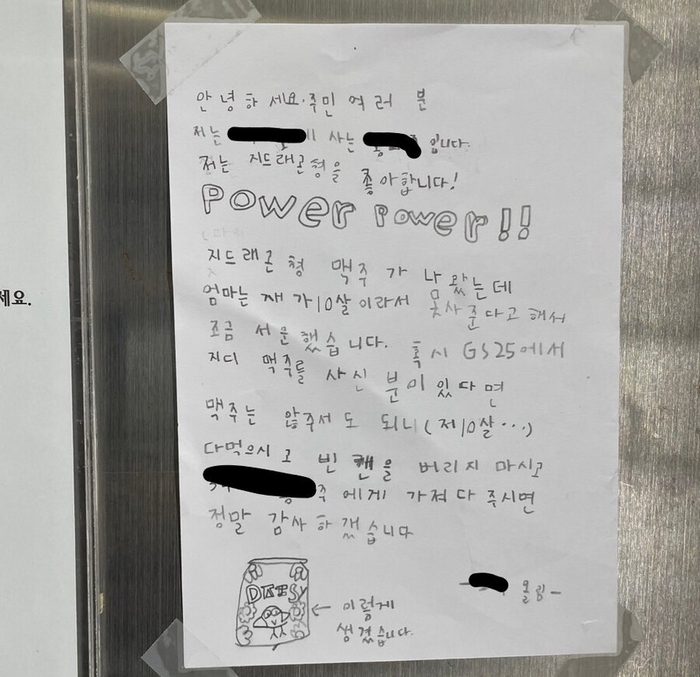 안녕하세요. 주민 여러 분
저는 에 사는 입니다.
저는 지드래곤형을 좋아합니다!
POWER POWER!!
지드래곤 형 맥주가 나왔는데
엄마는 재가 10살이라서 못사준다고 해서
조금 서운했습니다. 혹시 GS25에서
지디 맥주를 사신 분이 있다면
맥주는 않주셔도 되니 (제10살...)
다먹으시고 빈 캔을 버리지 마시고
주에게 가져다 주시면
정말 감사하겠습니다
- 올림-
← 이렇게
생겼습니다.
세요.